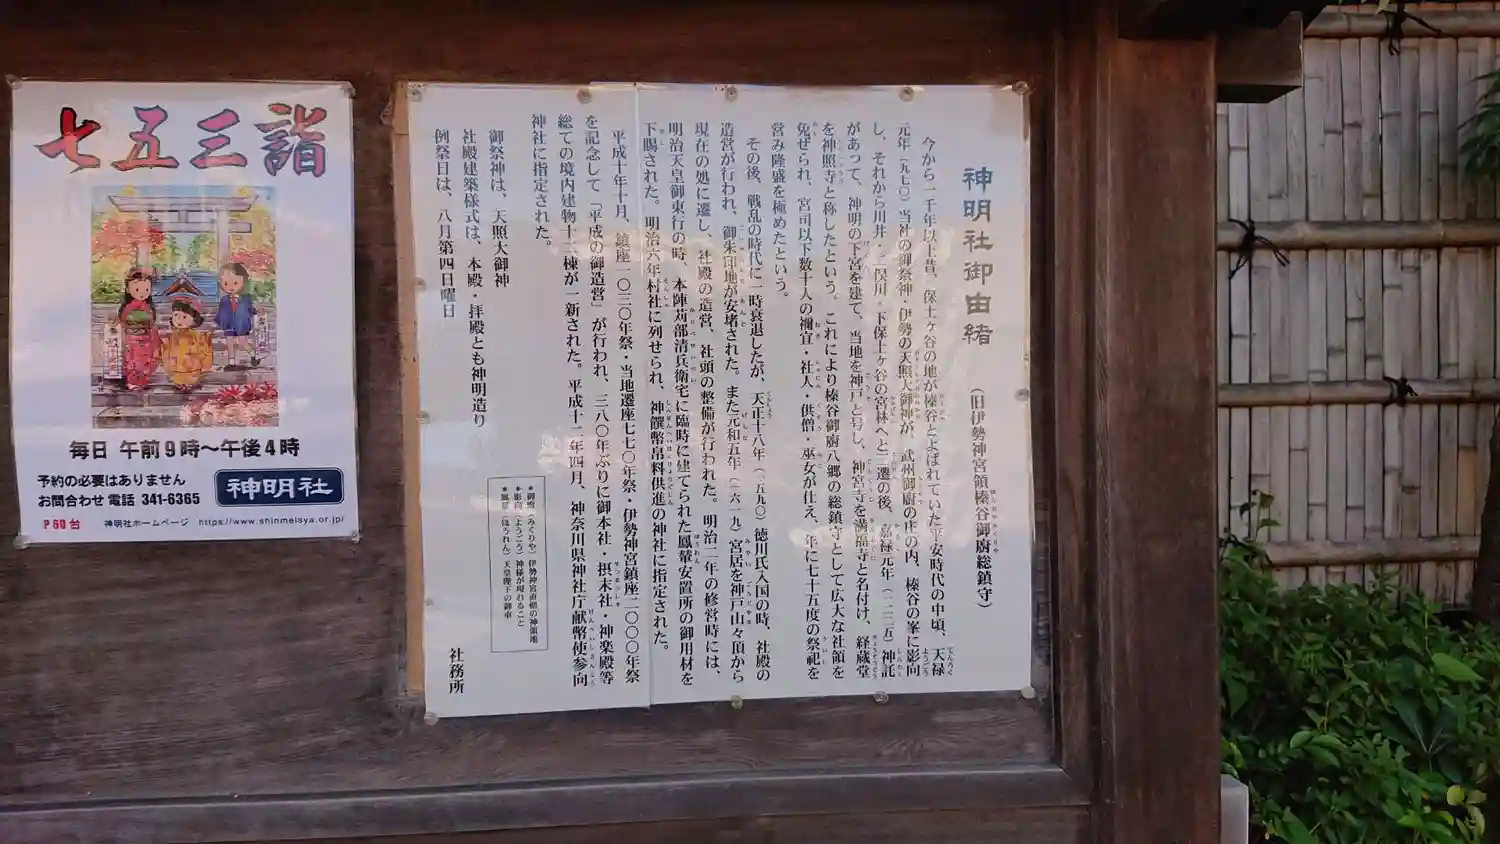 七五三詣
毎日 午前9時〜午後4時
予約の必要はありません
お問合わせ 電話 341-6365
神明社
P60台
神明社ホームページ https://www.shinmeisya.or.jp/
神明社御由緒
(旧伊勢神宮領榛谷御厨総鎮守)
今から一千年以上昔、保土ヶ谷の地が榛谷とよばれていた平安時代の中頃、天禄
元年(九七〇)当社の御祭神・伊勢の天照大御神が、武州御厨の庄の内、榛谷の峯に影向
し、それから川井・二俣川・下保土ヶ谷の宮林へと三遷の後、嘉禄元年(一二二五)神託
があって、神明の下宮を建て、当地を神戸と号し、神宮寺を満福寺と名付け、経蔵堂
を神照寺と称したという。これにより榛谷御厨八郷の総鎮守として広大な社領を
免ぜられ、宮司以下数十人の禰宜・社人・供僧・巫女が仕え、年に七十五度の祭祀を
営み隆盛を極めたという。
その後、戦乱の時代に一時衰退したが、天正十八年(一五九〇)徳川氏入国の時、社殿の
造営が行われ、御朱印地が安堵された。また元和五年(一六一九)宮居を神戸山々頂から
現在の処に遷し、社殿の造営、社頭の整備が行われた。明治二年の修営時には、
明治天皇御東行の時、本陣苅部清兵衛宅に臨時に建てられた鳳輦安置所の御用材を
下賜された。明治六年村社に列せられ、神饌幣帛料供進の神社に指定された。
平成十年十月、鎮座一〇三〇年祭・当地遷座七七〇年祭・伊勢神宮鎮座二〇〇〇年祭
を記念して「平成の御造営」が行われ、三八〇年ぶりに御本社・摂末社・神楽殿等
総ての境内建物十二棟が一新された。平成十二年四月、神奈川県神社庁献幣使参向
神社に指定された。
御祭神は、天照大御神
社殿建築様式は、本殿・拝殿とも神明造り
例祭日は、八月第四日曜日
*御厨(みくりや) 伊勢神宮直轄の神領地
*影向(ようごう) 神様が現れること
*鳳輦(ほうれん) 天皇陛下の御車
社務所